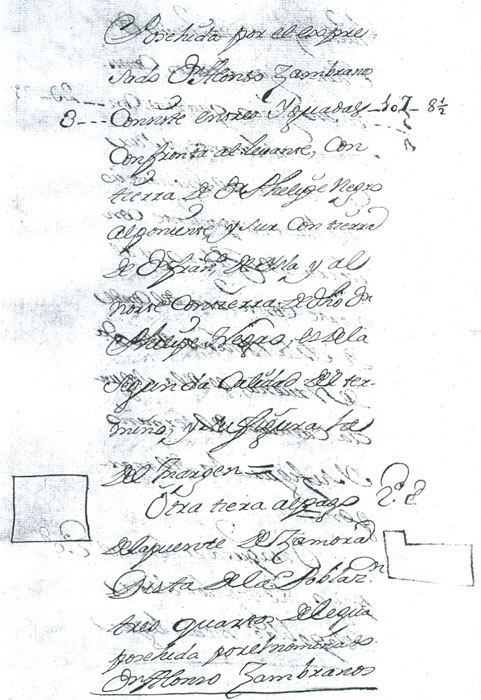 Posehida por el es pre
sado Dn Alonso Zambrano
3 --- Consiste en tres Yguadas 8½
Confronta al levante, con
tierra de Dn Phelipe Negro
al poniente, y sur con tierra
de Dn Fran.co de Isla y al
norte con tierra de dho Dn
Phelipe Negro, es de la
segunda Calidad del ter-
mino, y su figura la
del margen =
Otra tierra al pago 2.ª
de la puente de Zamora
Dista de la Poblaz.on
tres quartos de legua
posehida por el nominado
Dn Alonso Zambrano